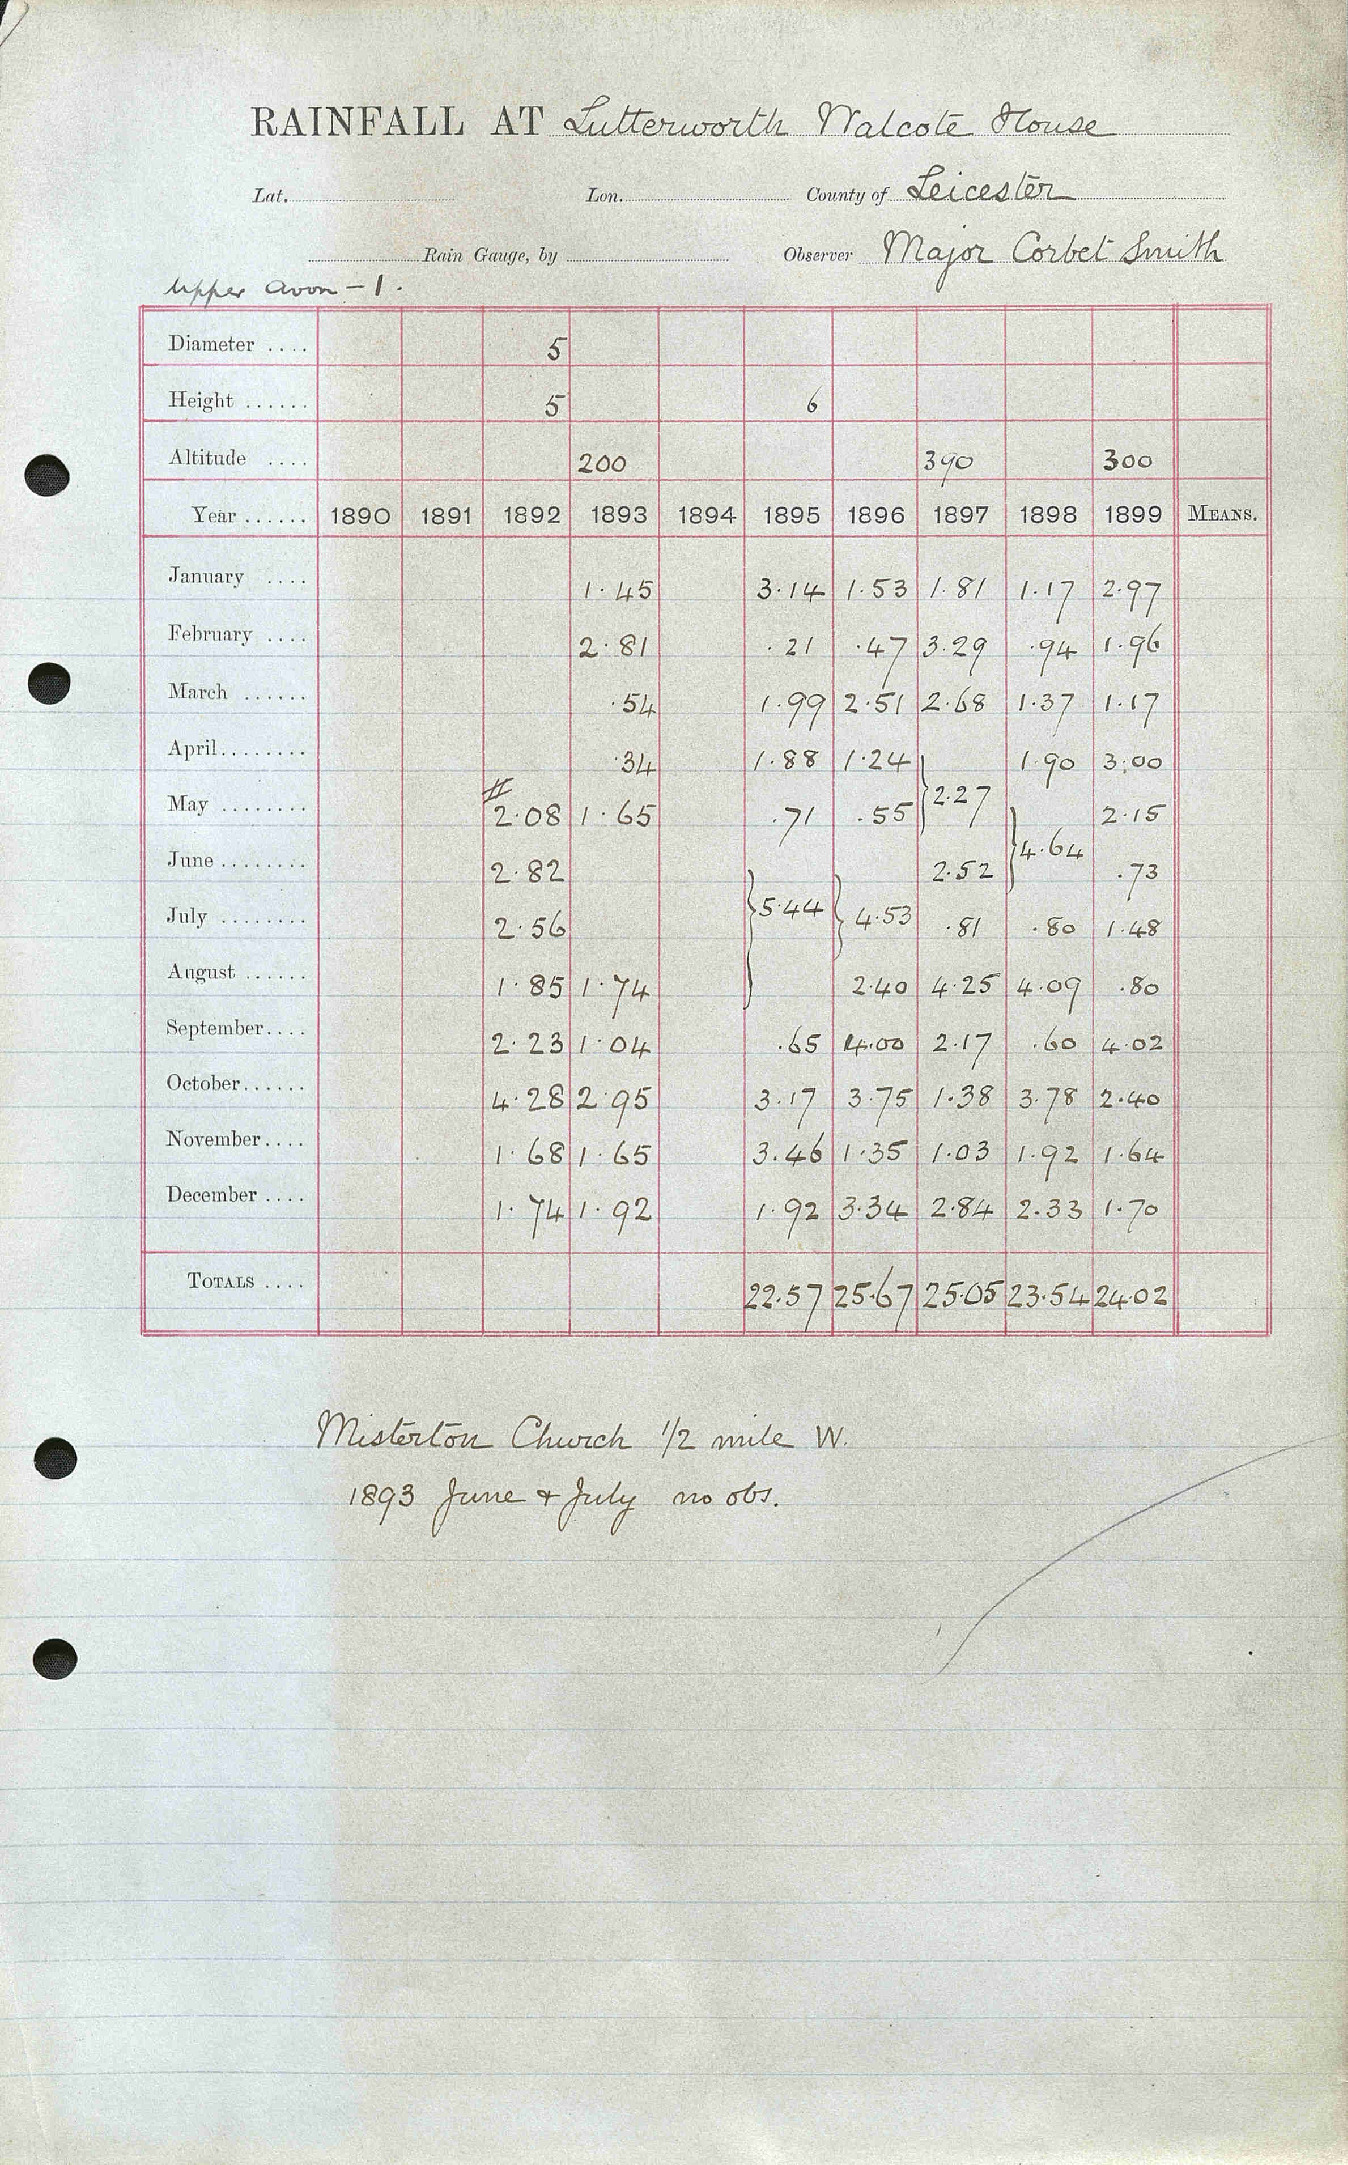 RAINFALL AT Lutterworth Walcote House
Lat. Lon. County of Leicester
Rain Gauge, by Observer Major Corbet Smith
Upper Avon - 1.
Diameter .... 5
Height ...... 5 6
Altitude .... 200 390 300
Year ...... 1890 1891 1892 1893 1894 1895 1896 1897 1898 1899 MEANS.
January .... 1.45 3.14 1.53 1.81 1.17 2.97
February .... 2.81 .21 .47 3.29 .94 1.96
March ...... .54 1.99 2.51 2.68 1.37 1.17
April........ .34 1.88 1.24 1.90 3.00
May ........ # 2.08 1.65 .71 .55 } 2.27 2.15
June ........ 2.82 2.52 } 4.64 .73
July ........ 2.56 } 5.44 } 4.53 .81 .80 1.48
August ...... 1.85 1.74 2.40 4.25 4.09 .80
September.... 2.23 1.04 .65 4.00 2.17 .60 4.02
October...... 4.28 2.95 3.17 3.75 1.38 3.78 2.40
November.... 1.68 1.65 3.46 1.35 1.03 1.92 1.64
December .... 1.74 1.92 1.92 3.34 2.84 2.33 1.70
TOTALS .... 22.57 25.67 25.05 23.54 24.02
Misterton Church 1/2 mile W.
1893 June & July no obs.